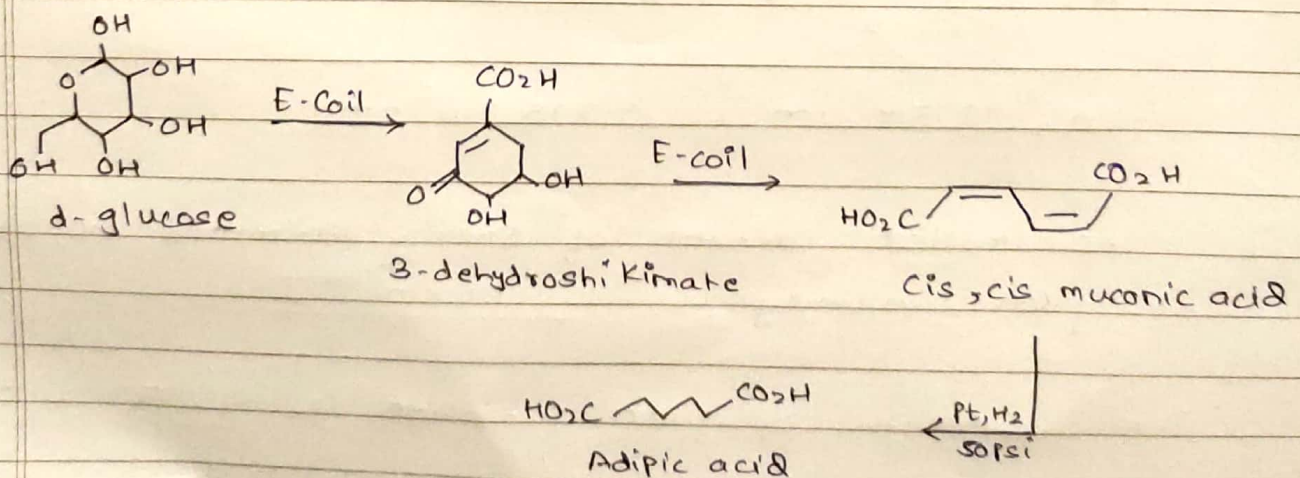 OH
O
OH
OH
OH
OH
d-glucose
E-Coil
CO2H
O
OH
OH
3-dehydroshikimate
E-coil
HO2C
CO2H
cis, cis muconic acid
Pt, H2
50psi
HO2C
CO2H
Adipic acid